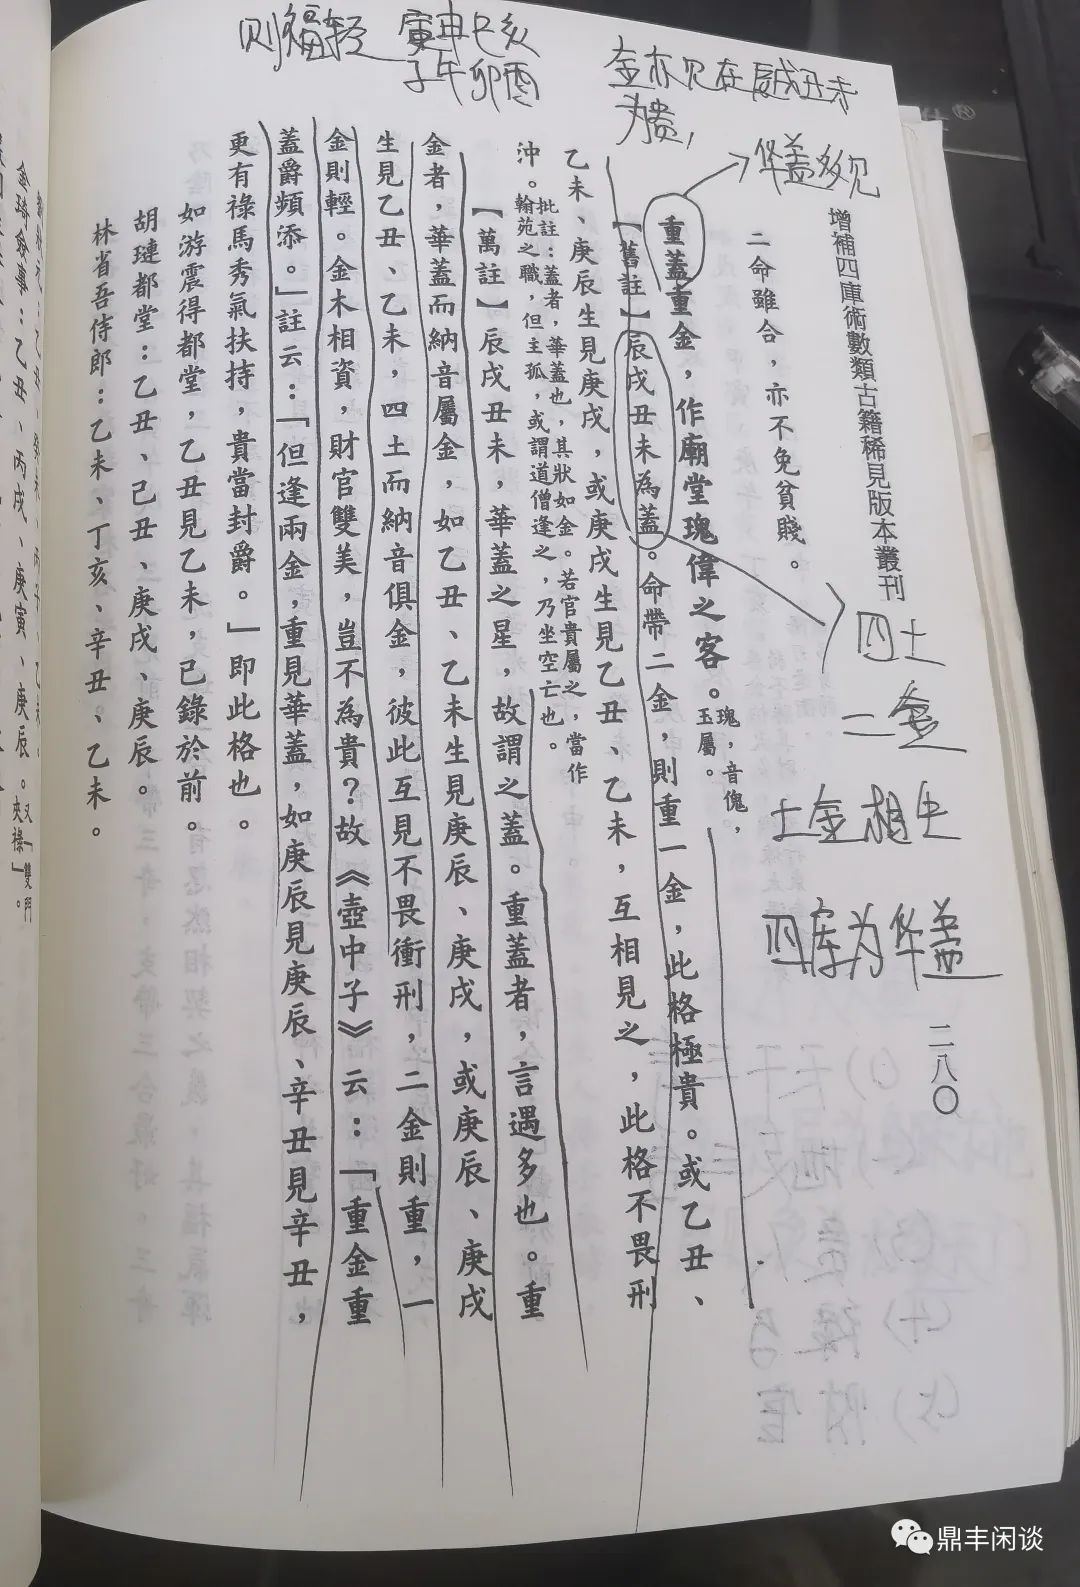 则福轻 寅申巳亥
子午卯酉
金亦见在辰戌丑未
为贵,
华盖多见
增補四庫術數類古籍稀見版本叢刊
二八〇
四土
二金
土金相生
四库为华盖
二命雖合，亦不免貧賤。
重蓋重金，作廟堂瑰偉之客。瑰，音傀，玉屬。
【舊註】辰戌丑未為蓋。命帶二金，則重一金，此格極貴。或乙丑、
乙未、庚辰生見庚戌，或庚戌生見乙丑、乙未，互相見之，此格不畏刑
沖。批註：蓋者，華蓋也，其狀如金。若官貴屬之，當作翰苑之職，但主孤，或謂道僧逢之，乃坐空亡也。
【萬註】辰戌丑未，華蓋之星，故謂之蓋。重蓋者，言遇多也。重
金者，華蓋而納音屬金，如乙丑、乙未生見庚辰、庚戌，或庚辰、庚戌
生見乙丑、乙未，四土而納音俱金，彼此互見不畏衝刑，二金則重，一
金則輕。金木相資，財官雙美，豈不為貴？故《壺中子》云：「重金重
蓋爵頻添。」註云：「但逢兩金，重見華蓋，如庚辰見庚辰、辛丑見辛丑，
更有祿馬秀氣扶持，貴當封爵。」即此格也。
如游震得都堂，乙丑見乙未，已錄於前。
胡璉都堂：乙丑、己丑、庚戌、庚辰。
林省吾侍郎：乙未、丁亥、辛丑、乙未。
事：乙丑、丙戌、庚寅、庚辰。又「雙門夾祿」。
鼎丰闲谈